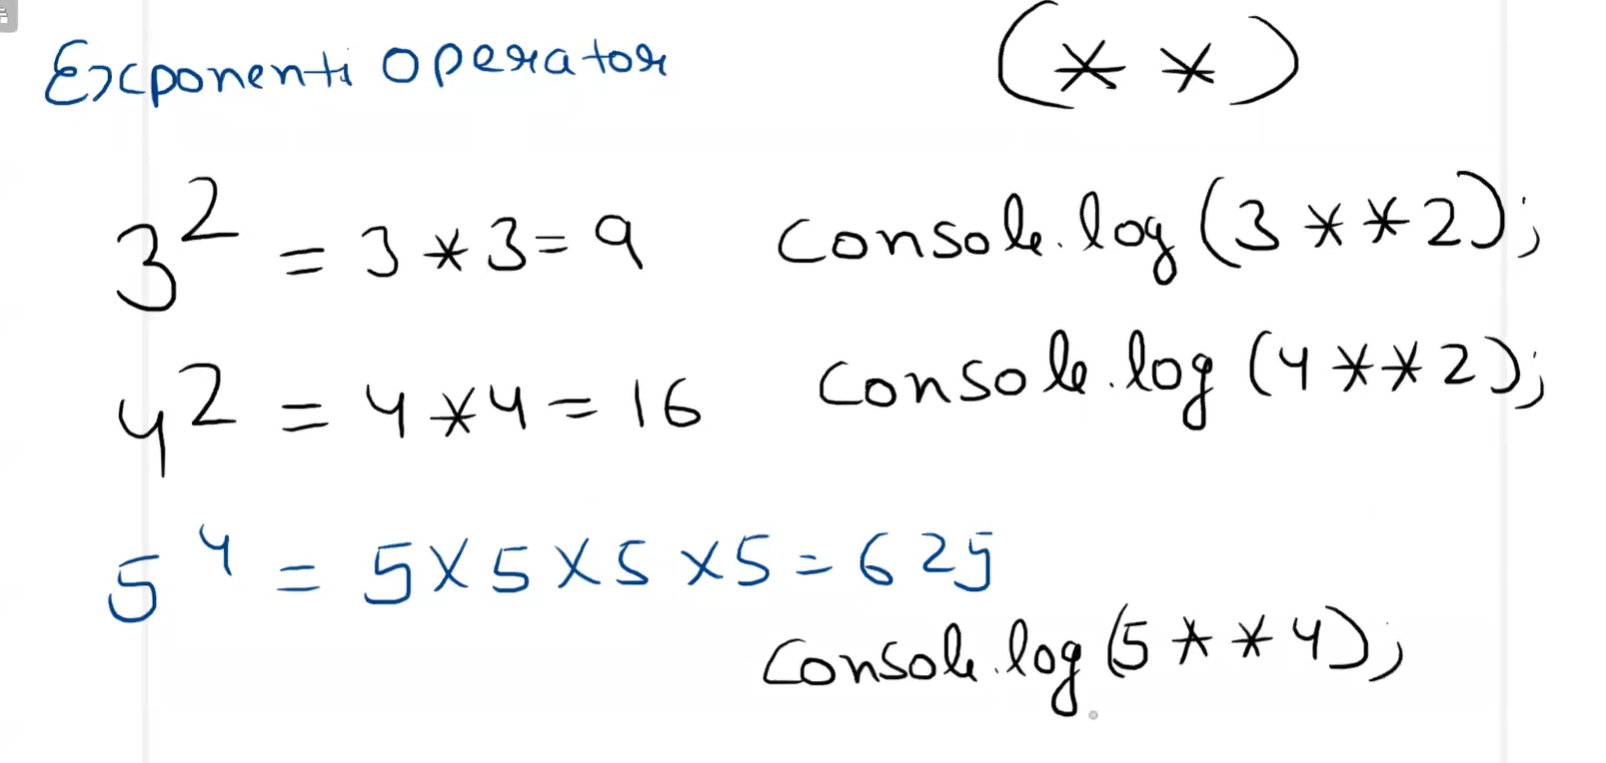 Exponenti operator (**)
3² = 3 * 3 = 9 console.log(3 ** 2);
4² = 4 * 4 = 16 console.log(4 ** 2);
5⁴ = 5 X 5 X 5 X 5 = 625
console.log(5 ** 4);